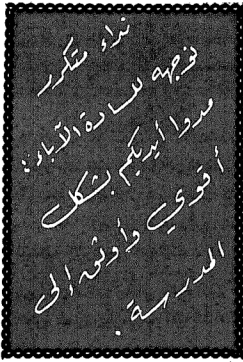 نداء متكرر
نوجهه للسادة الآباء:
مدوا أيديكم بشكل
أقوي وأوثق إلى
المدرسة.